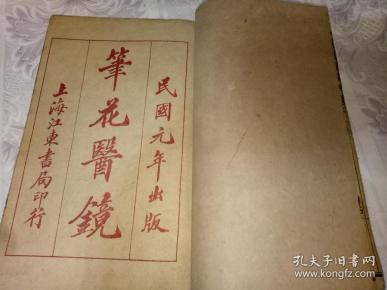 民國元年出版
筆花醫鏡
上海江東書局印行
孔夫子旧书网
www.kongfz.com